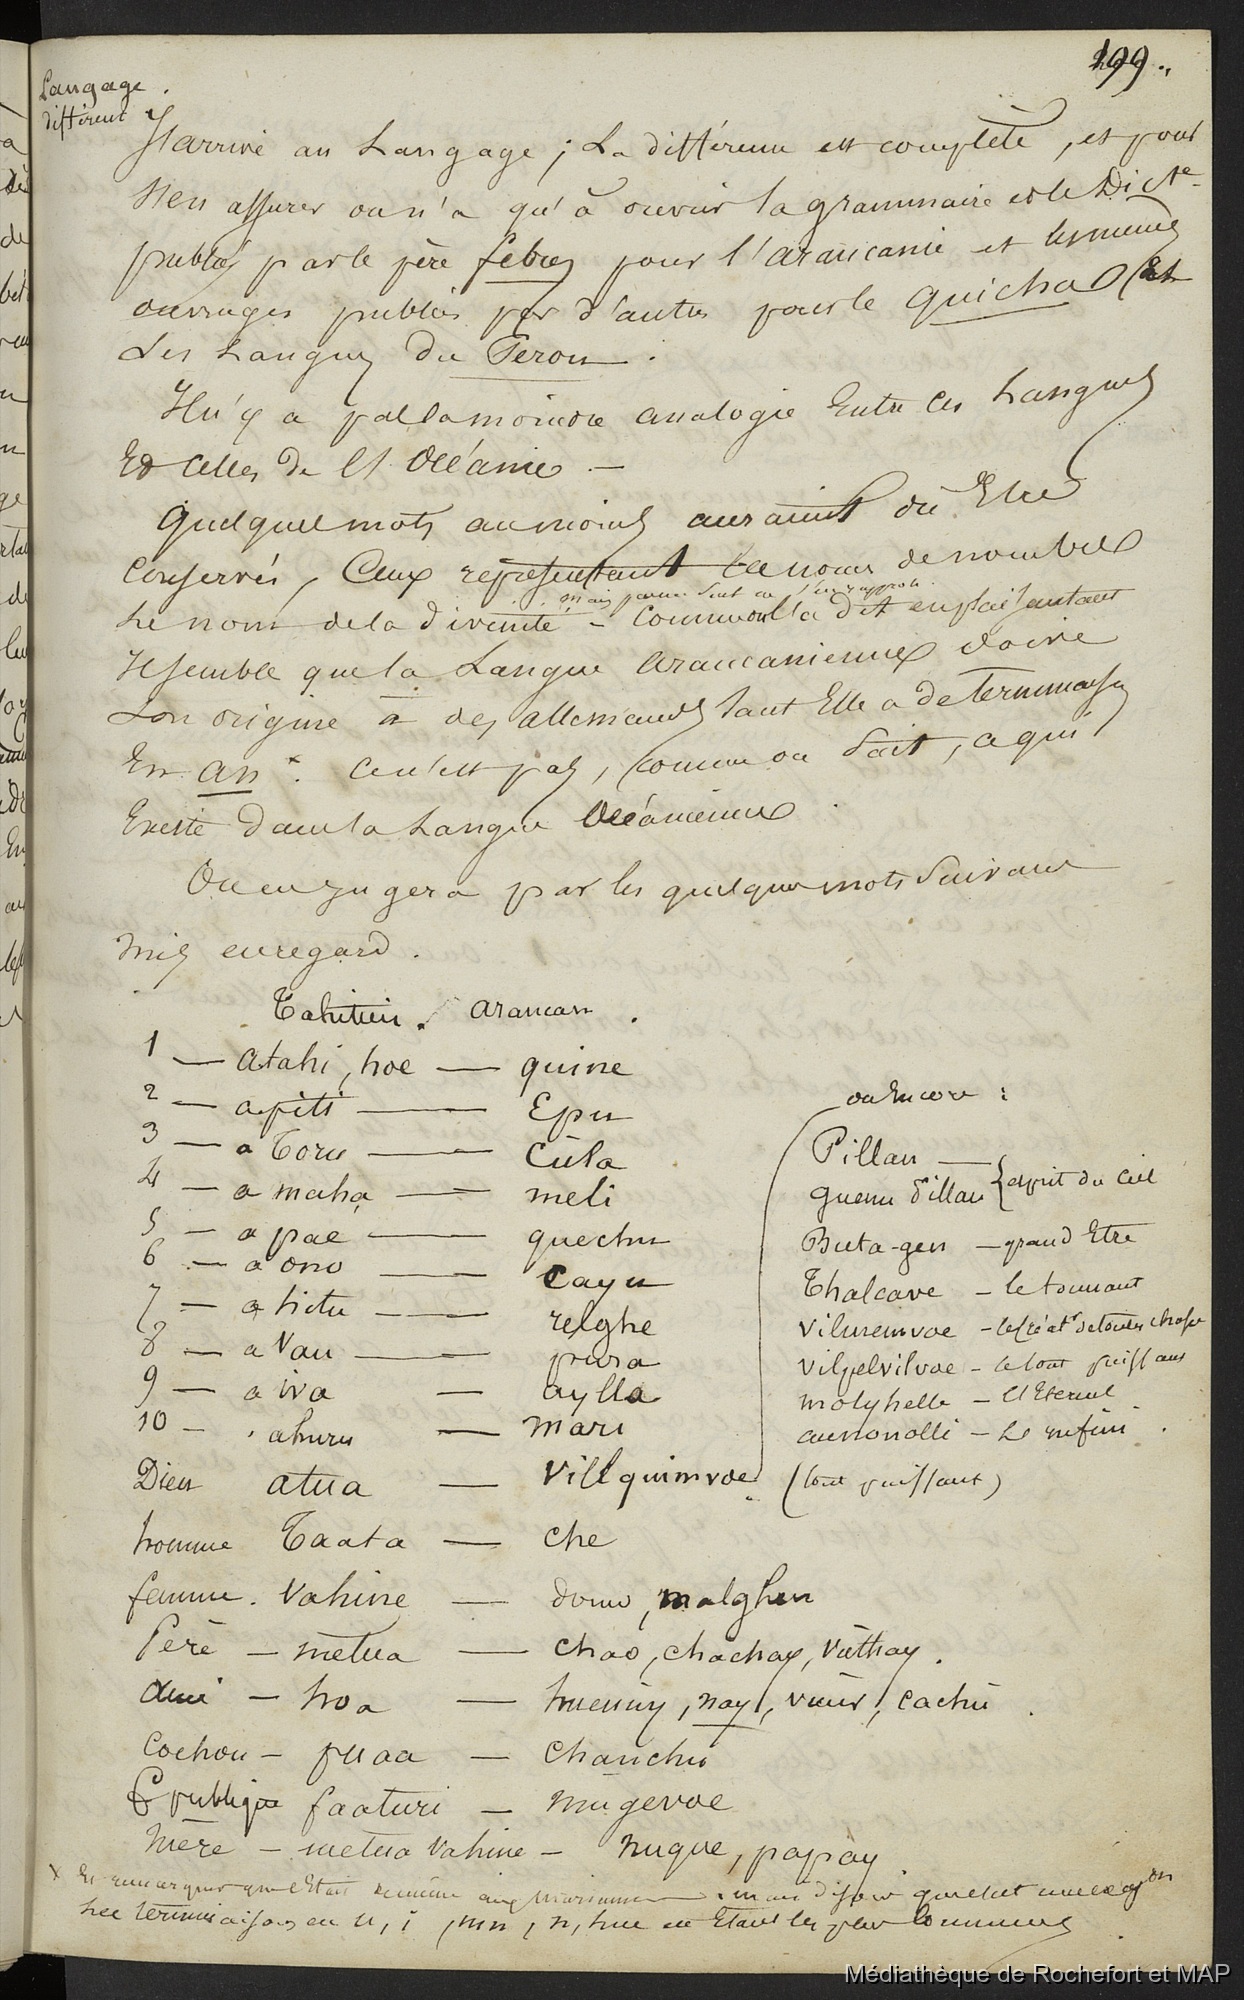 199.
Langage
différent
J'arrive au Langage ; La différence est complète, et pour
s'en assurer on n'a qu'à ouvrir la grammaire et le Dict.e
publiés par le père febres pour l'araucanie et les mêmes
ouvrages publiés par d'autres pour le quichoa et
Les Langues du Perou.
Il n'y a pas la moindre analogie Entre ces Langues
Et celles de l'Océanie. —
quelques mots au moins auraient dû Etre
conservés, Ceux représentant les noms de nombres
mais parmi
Le nom de la divinité - Comme on l'a dit en plaisantant
Il semble que la Langue araucanienne doive
son origine à des allemands tant Elle a de terminaisons
En an x. Ce n'est pas, comme on sait, ce qui
Existe dans la Langue Océanienne
On en jugera par les quelques mots suivans
mis en regard.
Tahitien. araucan.
1 — atahi, hoe — quine
2 — apiti — Epu
3 — a Toru — Cula
4 — a maha — meli
5 — a pae — quechu
6 — a ono — Cayu
7 — a hitu — relghe
8 — a vau — pura
9 — a iva — aylla
10 — ahuru — mari
Dieu atua — Villquimvoe (tout puissant)
ou Encore :
Pillan —
guenu Pillan } esprit du ciel
Buta-gen — grand Etre
Thalcave — le tonnant
Vilmemvoe — le Créat.r de toutes choses
Vilpelvilvoe — le tout puissans
molghelle — l'Eternel
aunonolli — L'infini.
homme Taata — che
femme. Vahine — domo, malghen
Père — metua — chao, chachay, vuthay.
Ami — hoa — huenuy, nay, vuur, cachu.
Cochon — puaa — Chanchu
f publique faaturi — nugevoe
Mère — metua Vahine — nuque, papay.
x
les terminaisons en u, i, mn, n, hue en Etant les plus Communes